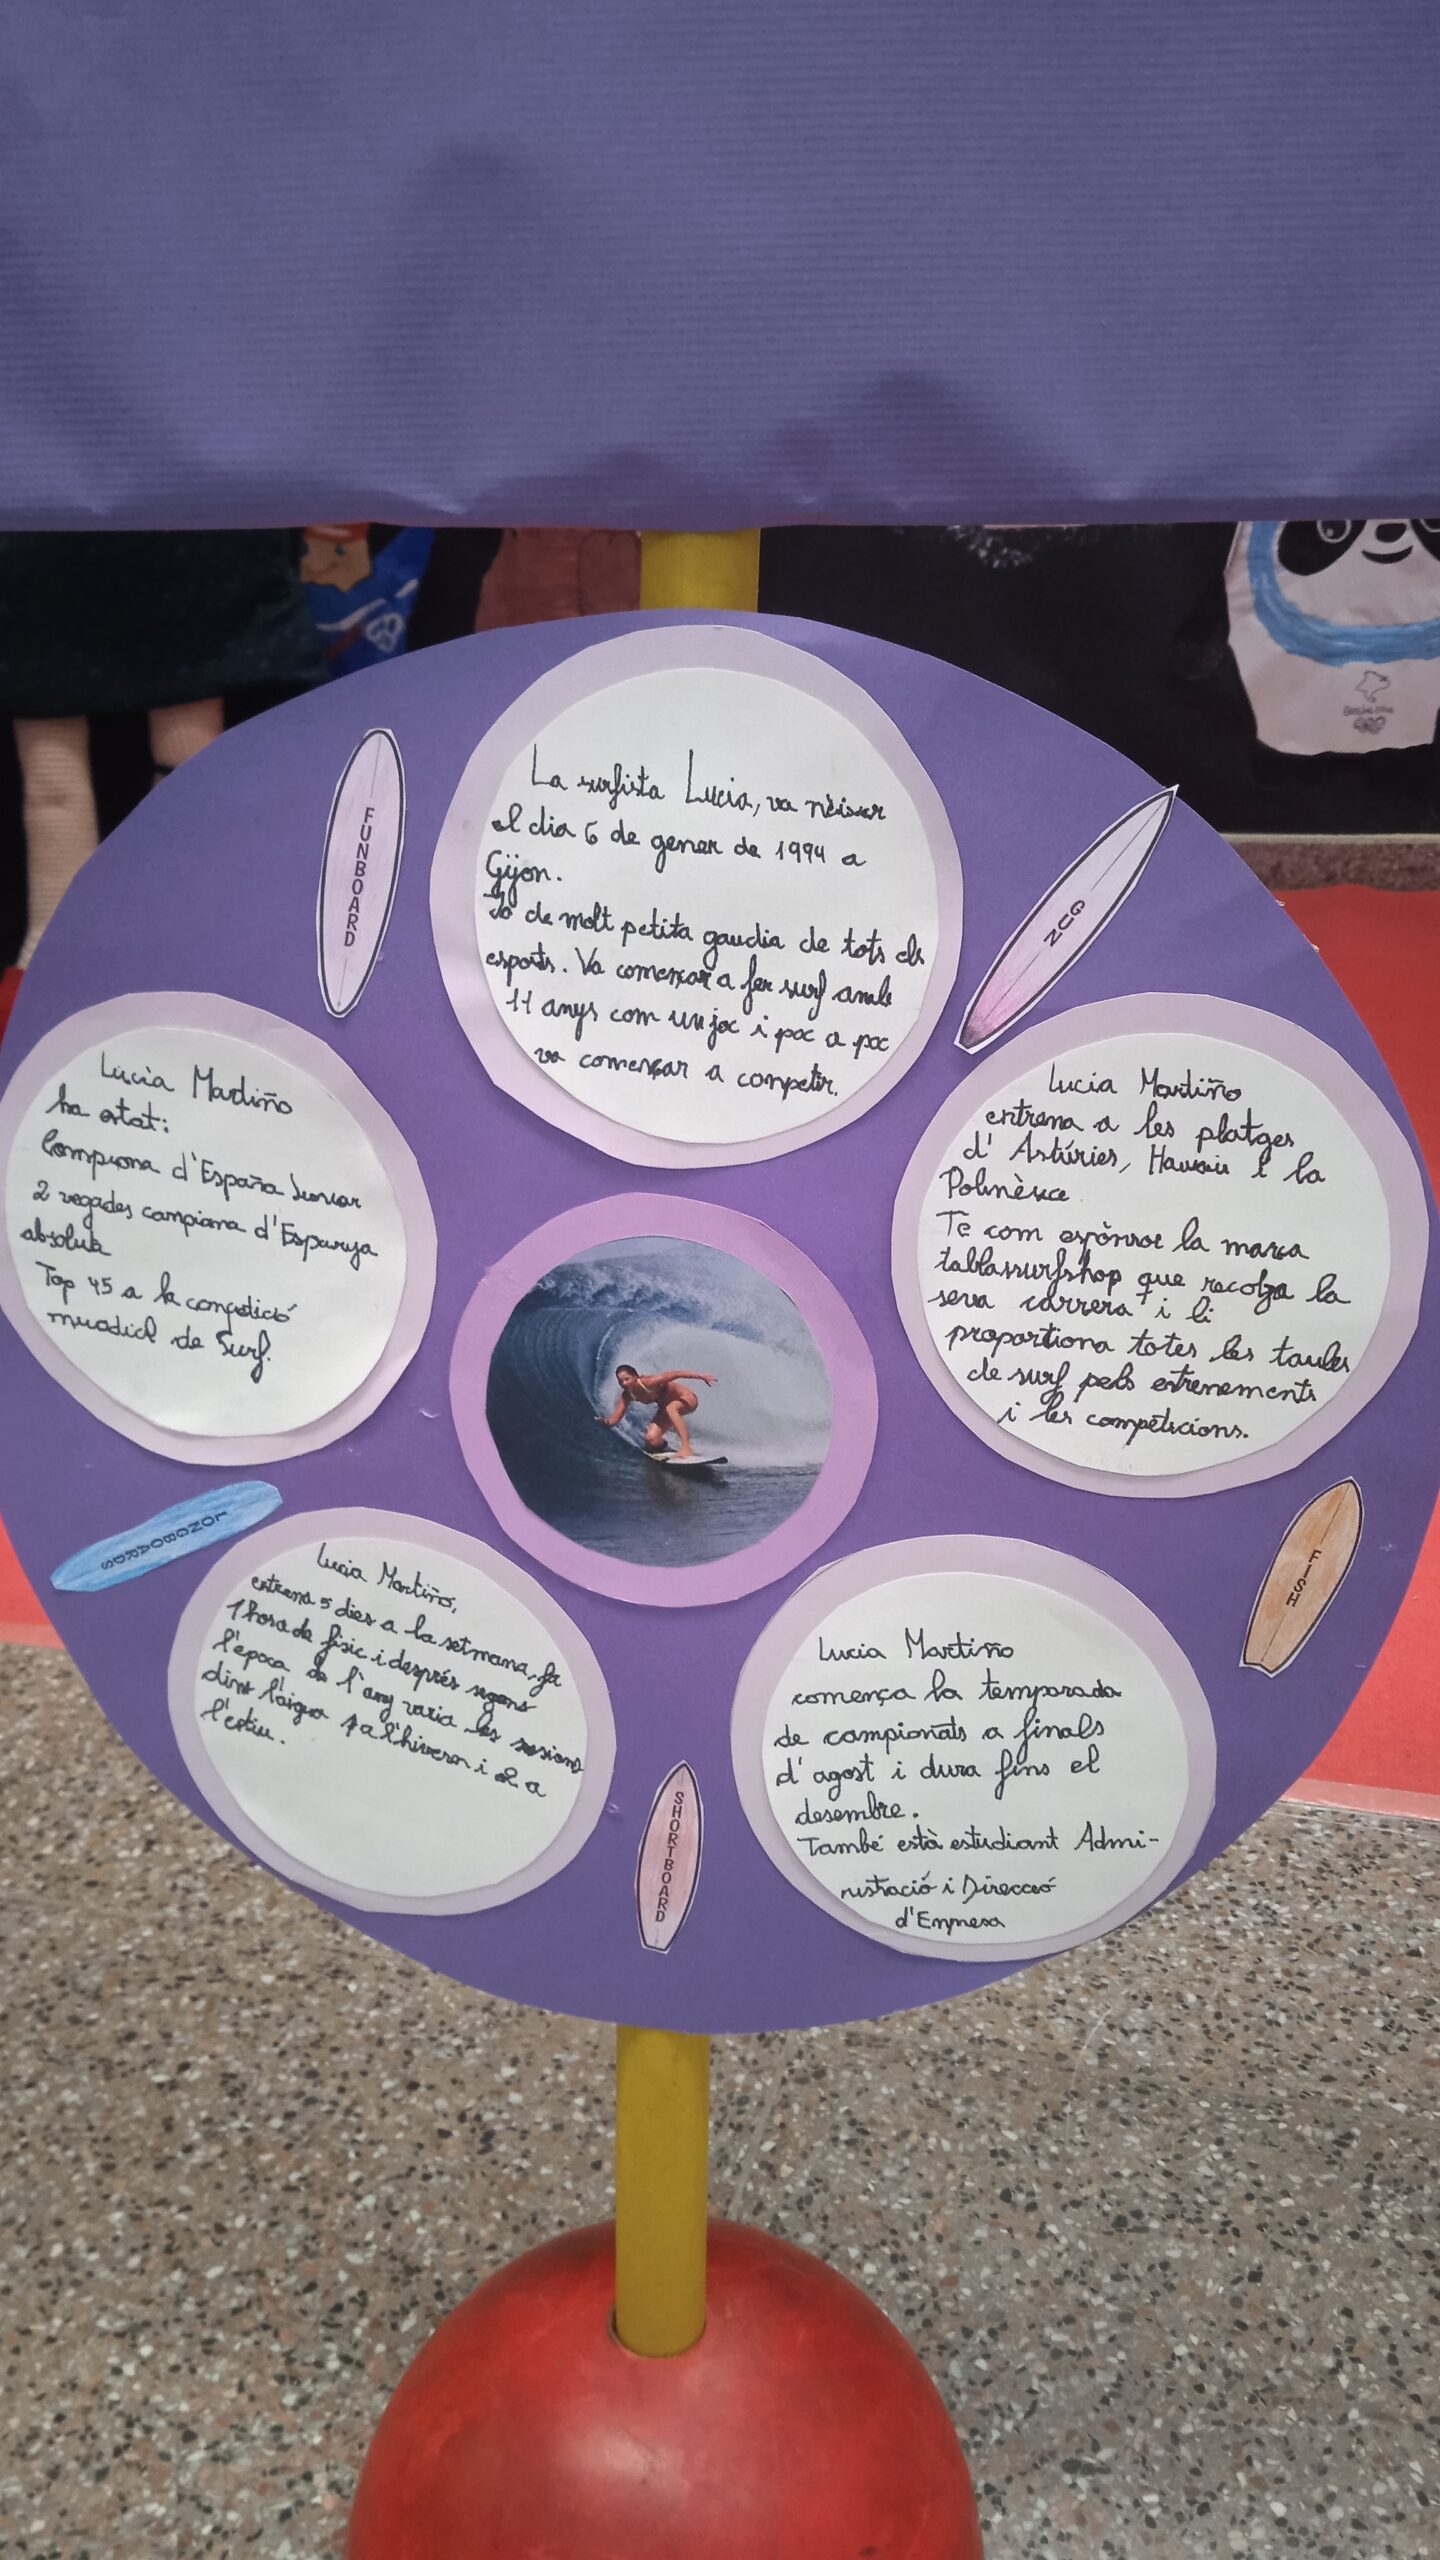 La surfista Lucia, va nèixer
el dia 6 de gener de 1994 a
Gijon.
Ja de molt petita gaudia de tots els
esports. Va començar a fer surf amb
11 anys com un joc i poc a poc
va començar a competir.
FUNBOARD
GUN
Lucia Martiño
ha estat:
Campiona d'España Junior
2 vegades campiona d'Espanya
absoluta
Top 45 a la competició
mundial de Surf.
Lucia Martiño
entrena a les platges
d'Astúries, Hawaii i la
Polinèsia
Té com espònsor la marca
tablassurfshop que recolza la
seva carrera i li
proportiona totes les taules
de surf pels entrenaments
i les competicions.
LONGBOARDS
FISH
Lucia Martiño,
entrena 5 dies a la setmana, fa
1 hora de físic i després segons
l'epoca de l'any varia les sesions
dins l'aigua 1 a l'hivern i 2 a
l'estiu.
SHORTBOARD
Lucia Martiño
comença la temporada
de campionats a finals
d'agost i dura fins el
desembre.
També està estudiant Admi-
nistració i Direcció
d'Empresa